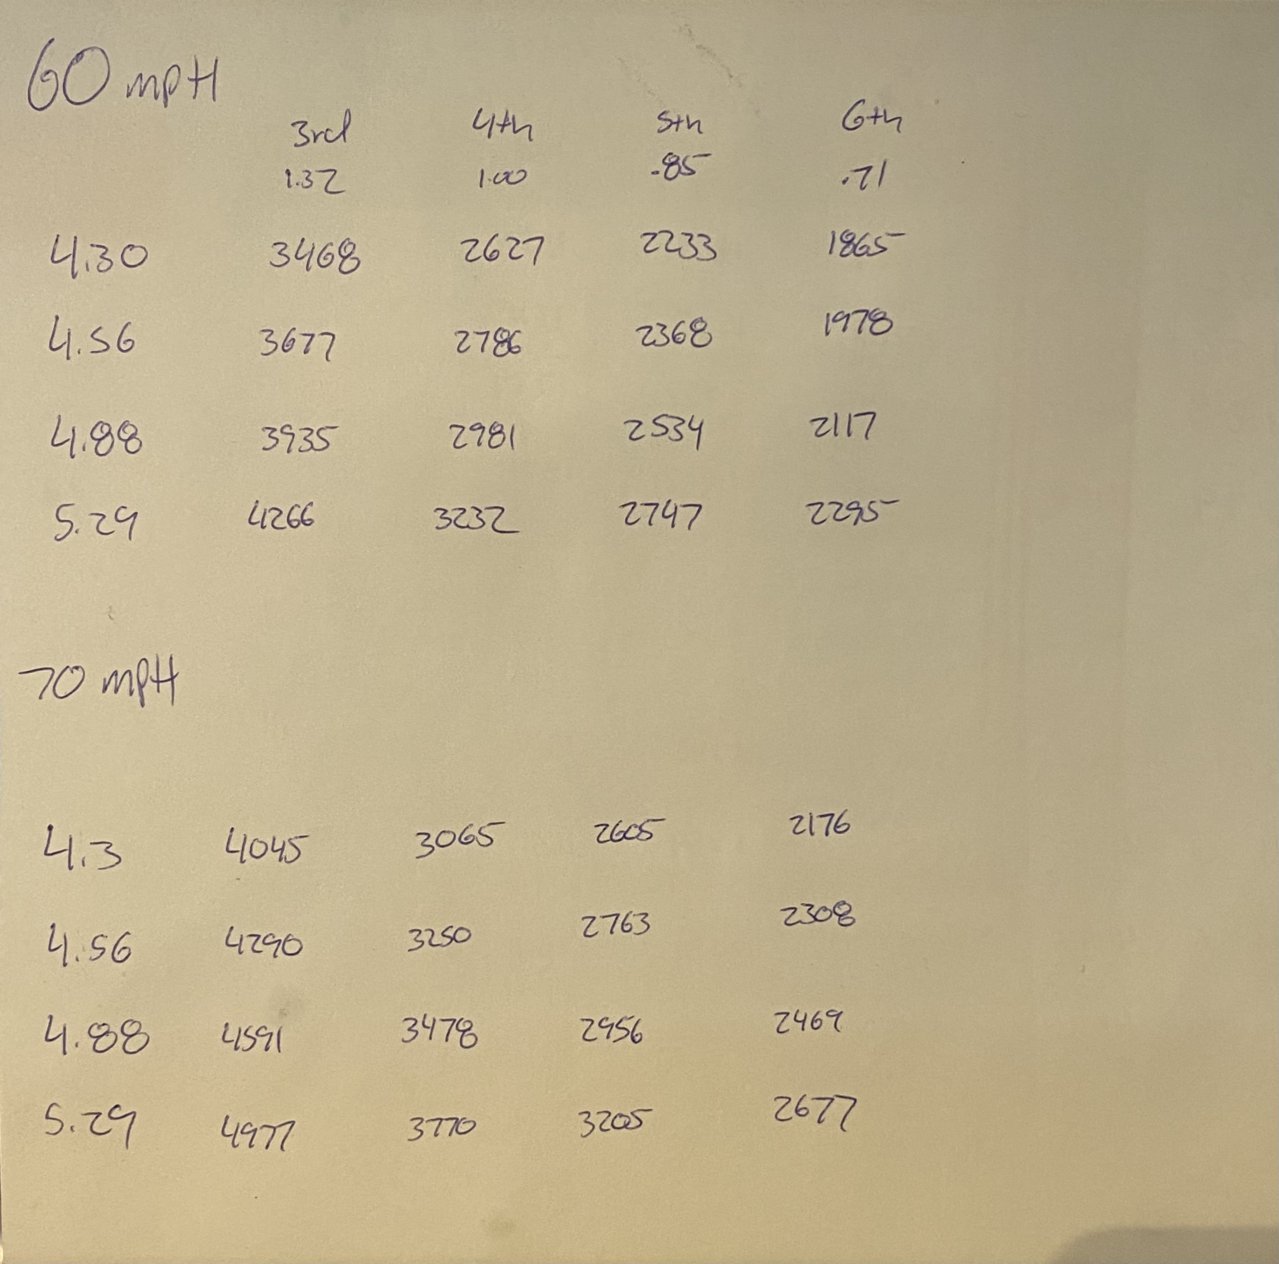 60 mpH
3rd 4th 5th 6th
1.32 1.00 .85 .71
4.30 3468 2627 2233 1865
4.56 3677 2786 2368 1978
4.88 3935 2981 2534 2117
5.29 4266 3232 2747 2295
70 mpH
4.3 4045 3065 2605 2176
4.56 4290 3250 2763 2308
4.88 4591 3478 2956 2469
5.29 4977 3770 3205 2677